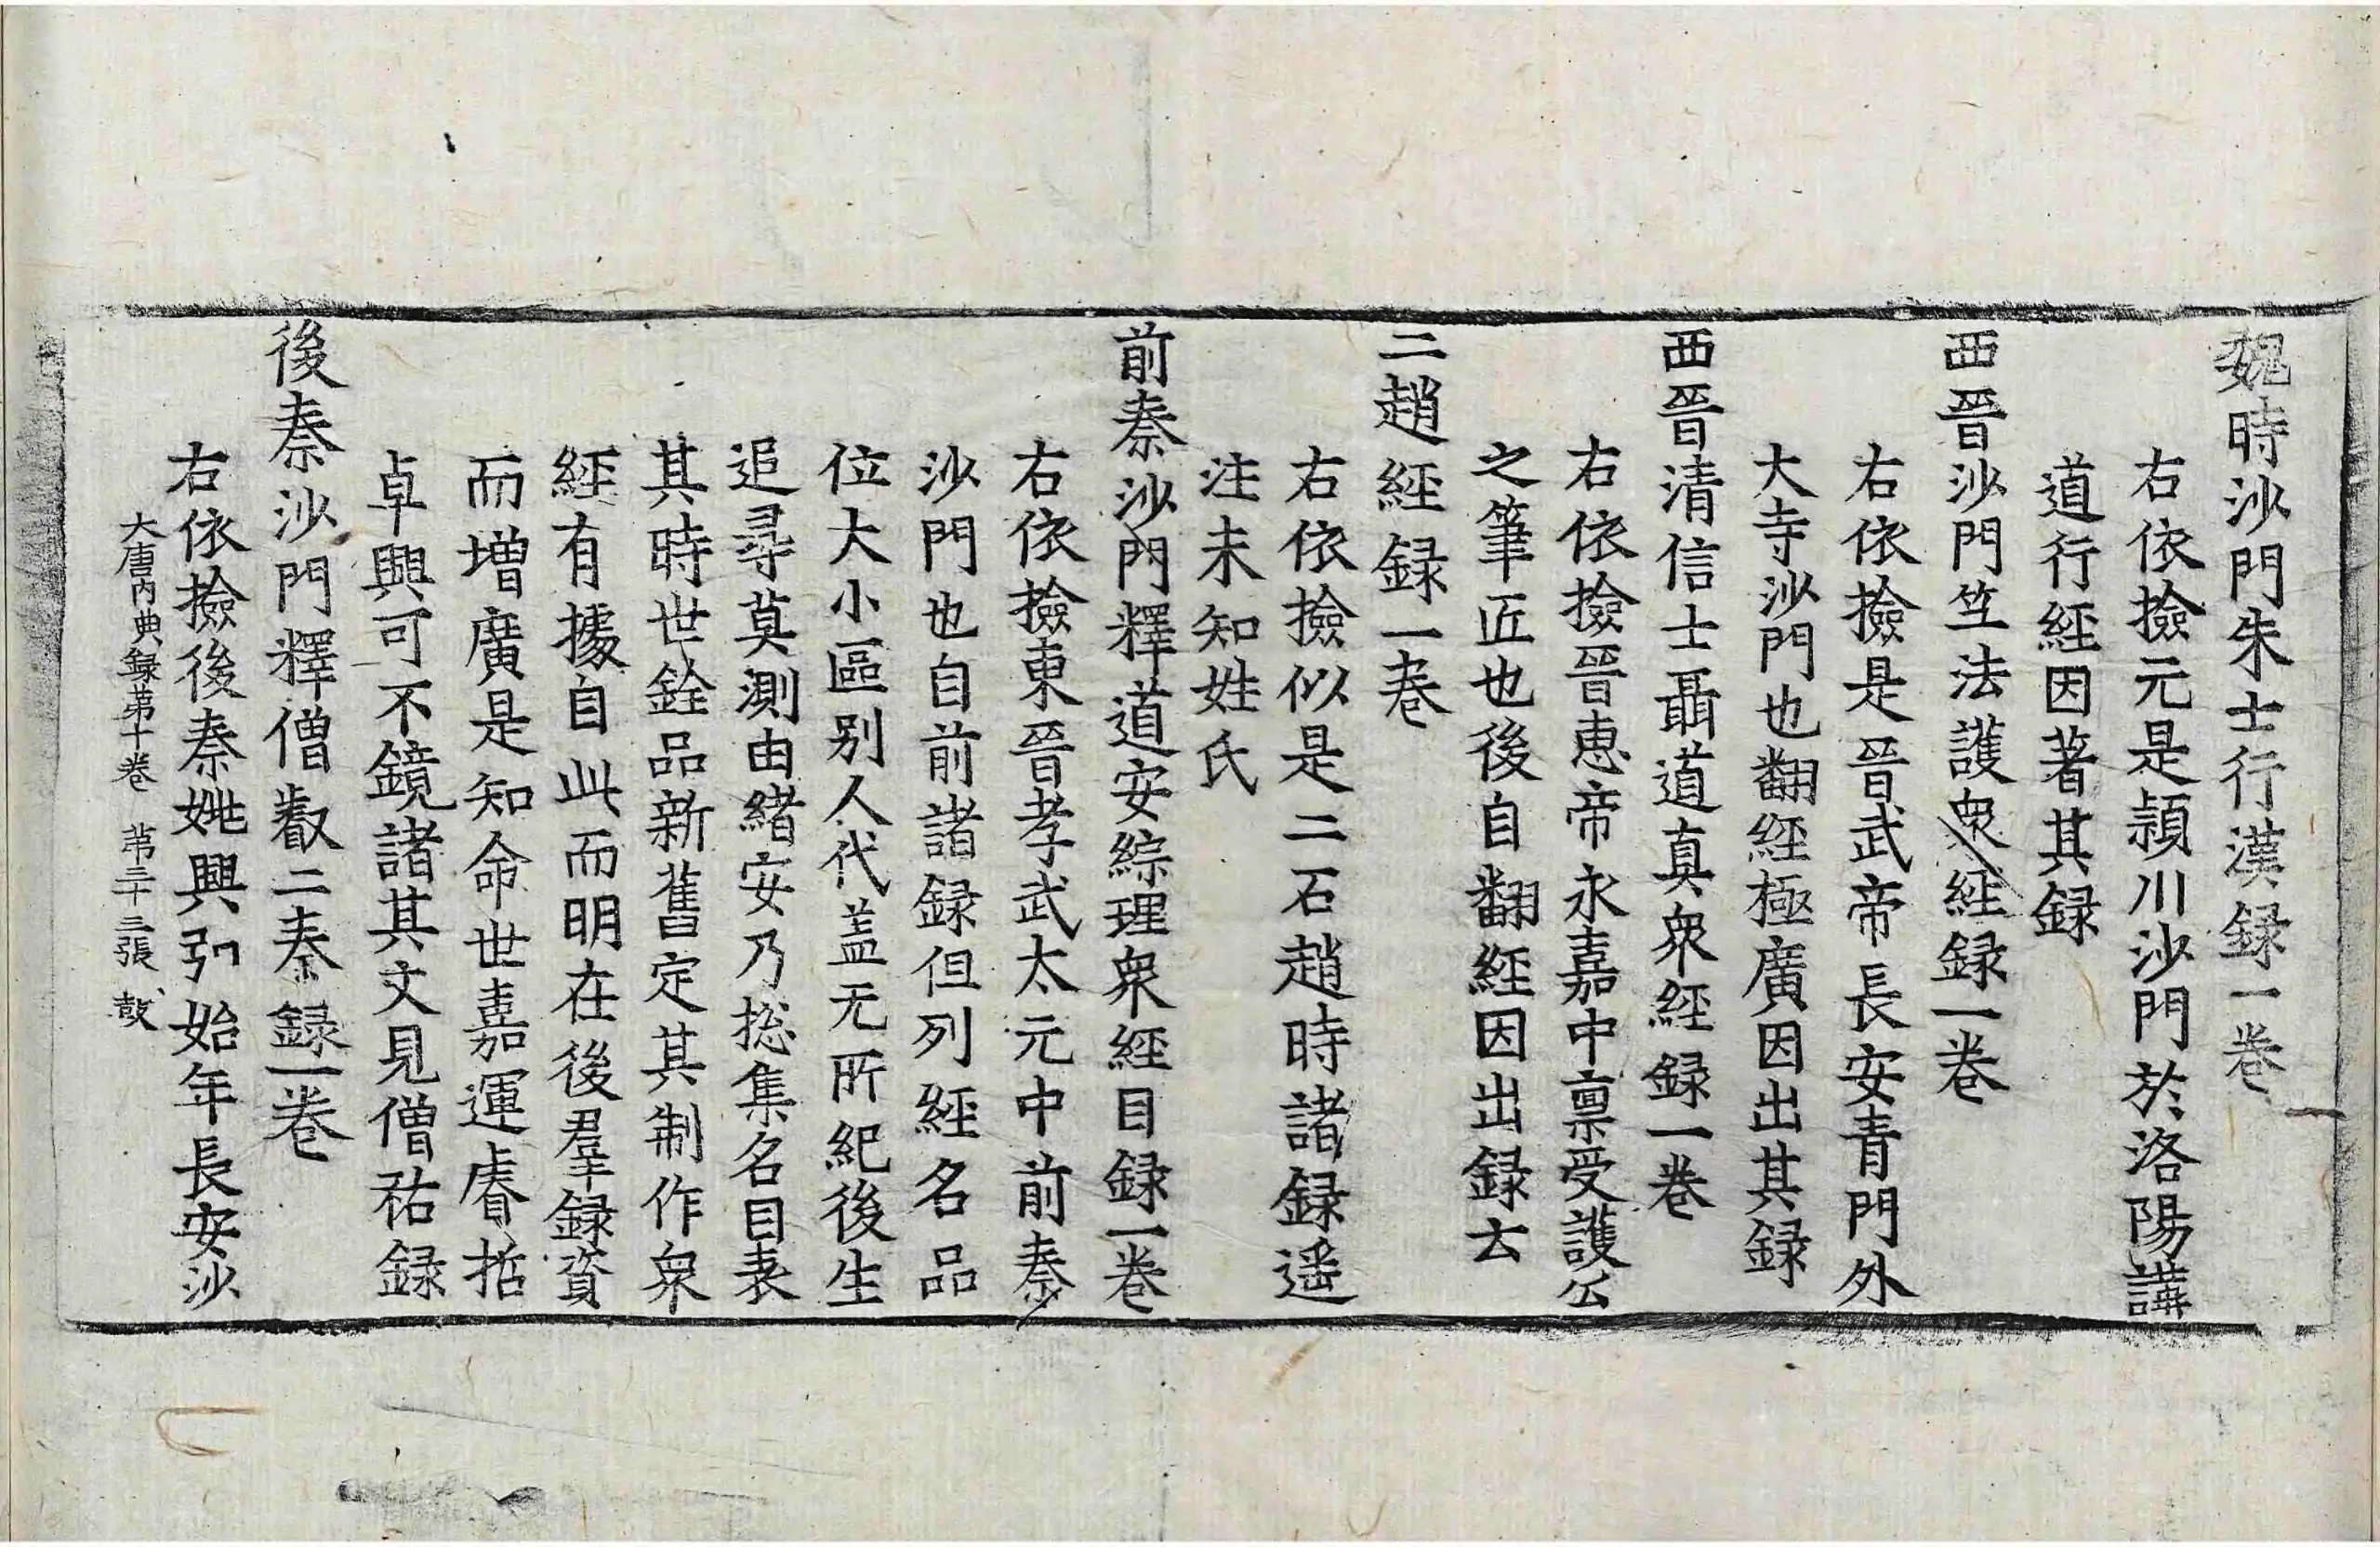 魏時沙門朱士行漢録一卷
右依撿元是頴川沙門於洛陽講
道行經因著其録
西晉沙門竺法護衆經録一卷
右依撿是晉武帝長安青門外
大寺沙門也翻經極廣因出其録
西晉清信士聶道真衆經録一卷
右依撿晉惠帝永嘉中禀受護公
之筆匠也後自翻經因出録去
二趙經録一卷
右依撿似是二石趙時諸録遥
注未知姓氏
前秦沙門釋道安綜理衆經目録一卷
右依撿東晉孝武太元中前秦
沙門也自前諸録但列經名品
位大小區别人代盖无所紀後生
追尋莫測由緒安乃捴集名目表
其時世銓品新舊定其制作衆
經有據自此而明在後羣録資
而增廣是知命世嘉運睿哲
卓興可不鏡諸其文見僧祐録
後秦沙門釋僧叡二秦録一卷
右依撿後秦姚興弘始年長安沙
大唐内典録第十卷 第二十三張 鼓